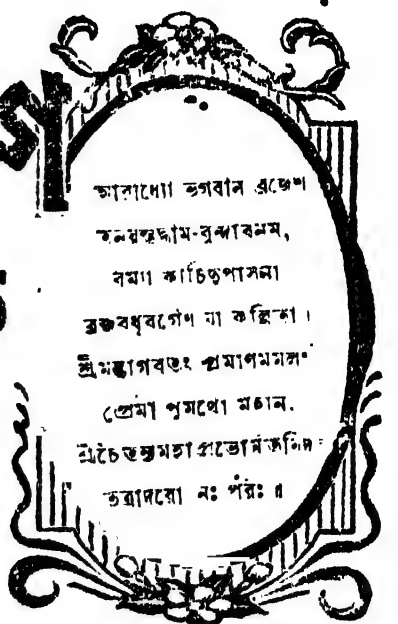 আরাধ্যো ভগবান ব্রজেশ
তনয়স্তদ্ধাম-বৃন্দাবনম,
রম্যা কাচিদুপাসনা
ব্রজবধূবর্গেণ যা কল্পিতা ।
শ্রীমদ্ভাগবতং প্রমাণমমলং
প্রেমা পুমর্থো মহান্.
শ্রীচৈতন্যমহাপ্রভোর্মতমিদং
তত্রাদরো নঃ পরঃ ॥